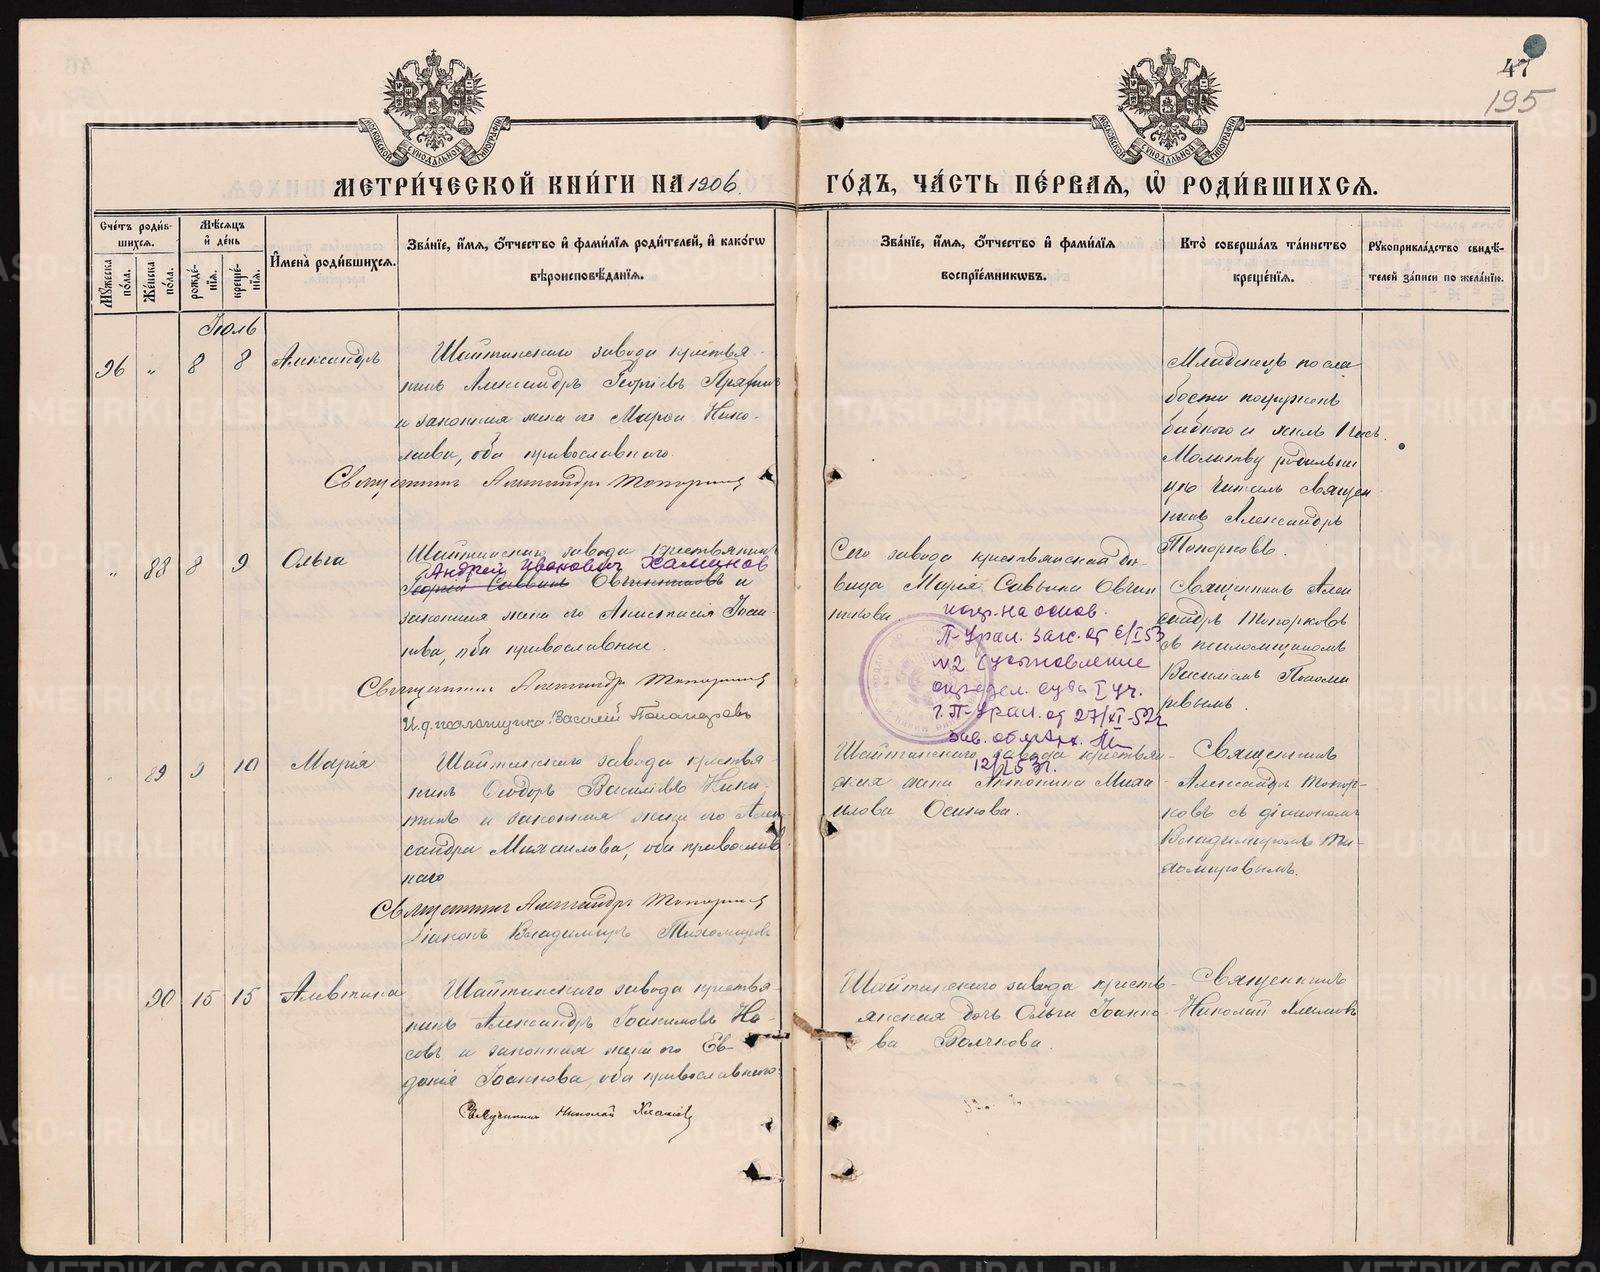 47
195
МОСКОВСКОЙ СѴНОДАЛЬНОЙ ТИПОГРАФІИ
МОСКОВСКОЙ СѴНОДАЛЬНОЙ ТИПОГРАФІИ
МЕТРИ́ЧЕСКОЙ КНИ́ГИ НА 1906.
ГО́ДЪ, ЧА́СТЬ ПЕ́РВАЯ, Ѡ҆ РОДИ́ВШИХСЯ.
Сче́тъ роди́в-
шихся.
Мꙋ́жеска по́ла.
Же́нска по́ла.
Мѣ́сяцъ
и҆ де́нь
рожде́-
нїя.
креще́-
нїя.
И҆мена̀ роди́вшихся.
Зва́нїе, и҆́мя, о҆́тчество и҆ фами́лїя роди́телей, и҆ како́гѡ
вѣроисповѣ́данїя.
Зва́нїе, и҆́мя, о҆́тчество и҆ фами́лїя
воспрїе́мникѡвъ.
Кто̀ соверша́лъ та́инство
креще́нїя.
Рꙋкоприкла́дство свидѣ́-
телей за́писи по жела́нїю.
Іюль
96 „ 8 8 Александръ
Шайтанскаго завода крестья-
нинъ Александръ Георгіевъ
и законная жена его Марѳа Нико-
лаева, оба православнаго.
Священникъ Александръ Топорковъ
Младенецъ по сла
бости погруженъ
бабкою и
Молитву родильни
цѣ читалъ священ
никъ Александръ
Топорковъ.
„ 88 8 9 Ольга
Шайтанскаго завода крестьянинъ
Андрей Иванович Халинов
Георгій Саввинъ Овчинниковъ и
законная жена его Анастасія Іоан-
нова, оба православные.
Священникъ Александръ Топорковъ
И. д. псаломщика Василій Пономаревъ
Сего завода крестьянская дѣ-
вица Марія Саввина Овчин
никова.
испр. на основ.
П-Урал. Загс. от 6/I 53
№2 (установление
определ. суда I уч.
г. П-Урал. от 27/XI-52г
Зав. обл
12/I 53г.
Священникъ Алек
сандръ Топорковъ
съ псаломщикомъ
Василіемъ Понома
ревымъ.
89 9 10 Марія
Шайтанскаго завода крестья-
нинъ Ѳеодоръ Василіевъ Ники-
тинъ и законная жена его Алек-
сандра Михаилова, оба православ-
наго
Священникъ Александръ Топорковъ
Діаконъ Владимиръ Тихомировъ
Шайтанскаго завода крестьян-
ская жена Антонина Миха-
илова Осипова.
Священникъ
Александръ Топор-
ковъ съ діакономъ
Владимиромъ Ти-
хомировымъ.
90 15 15 Алевтина
Шайтанскаго завода крестья-
нинъ Александръ Іоакимовъ Но-
совъ и законная жена его Ев-
докія Іоаннова, оба православнаго.
Священникъ Николай Хламовъ
Шайтанскаго завода кресть-
янская дочь Ольга Іоанно-
ва Волчкова.
Священникъ
Николай Хламовъ
METRIKI.GASO-URAL.RU